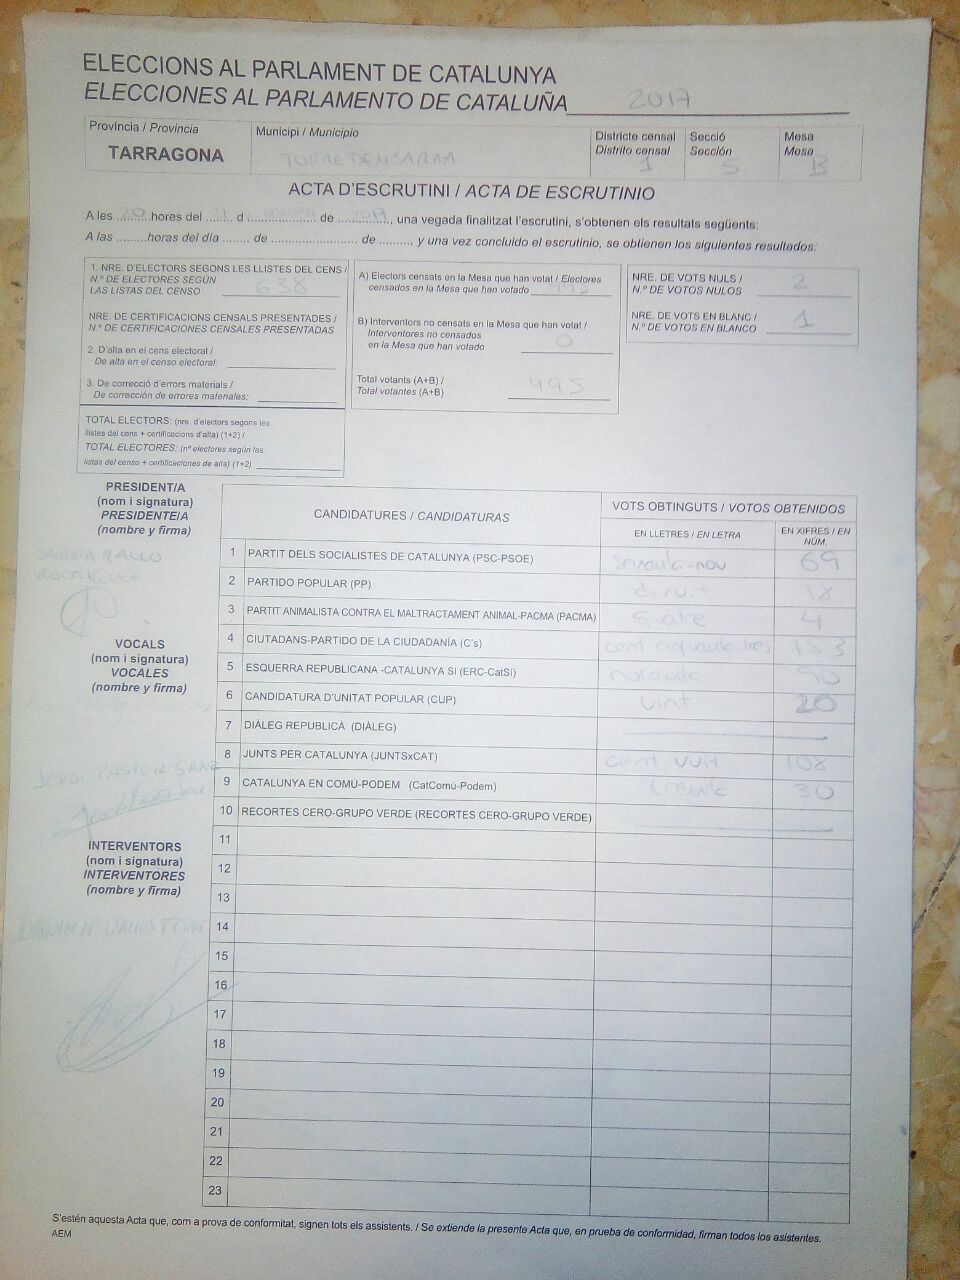 ELECCIONS AL PARLAMENT DE CATALUNYA
ELECCIONES AL PARLAMENTO DE CATALUÑA 2017
Província / Provincia
TARRAGONA
Municipi / Municipio
TORREDEMBARRA
Districte censal
Distrito censal
1
Secció
Sección
5
Mesa
Mesa
B
ACTA D'ESCRUTINI / ACTA DE ESCRUTINIO
A les 20 hores del 21 d de 2017, una vegada finalitzat l'escrutini, s'obtenen els resultats següents:
A las .........horas del día ........ de ........................... de ........., y una vez concluido el escrutinio, se obtienen los siguientes resultados:
1. NRE. D'ELECTORS SEGONS LES LLISTES DEL CENS /
N.º DE ELECTORES SEGÚN
LAS LISTAS DEL CENSO 638
NRE. DE CERTIFICACIONS CENSALS PRESENTADES /
N.º DE CERTIFICACIONES CENSALES PRESENTADAS
2. D'alta en el cens electoral /
De alta en el censo electoral:
3. De correcció d'errors materials /
De corrección de errores materiales:
TOTAL ELECTORS: (nre. d'electors segons les
llistes del cens + certificacions d'alta) (1+2) /
TOTAL ELECTORES: (nº electores según las
listas del censo + certificaciones de alta) (1+2)
A) Electors censats en la Mesa que han votat / Electores
censados en la Mesa que han votado
B) Interventors no censats en la Mesa que han votat /
Interventores no censados
en la Mesa que han votado 0
Total votants (A+B) /
Total votantes (A+B) 495
NRE. DE VOTS NULS /
N.º DE VOTOS NULOS 2
NRE. DE VOTS EN BLANC /
N.º DE VOTOS EN BLANCO 1
PRESIDENT/A
(nom i signatura)
PRESIDENTE/A
(nombre y firma)
RALLO
RODRIGUEZ
VOCALS
(nom i signatura)
VOCALES
(nombre y firma)
JORDI PASTOR SANZ
INTERVENTORS
(nom i signatura)
INTERVENTORES
(nombre y firma)
CANDIDATURES / CANDIDATURAS
VOTS OBTINGUTS / VOTOS OBTENIDOS
EN LLETRES / EN LETRA
EN XIFRES / EN NÚM.
1 PARTIT DELS SOCIALISTES DE CATALUNYA (PSC-PSOE) seixanta-nou 69
2 PARTIDO POPULAR (PP) divuit 18
3 PARTIT ANIMALISTA CONTRA EL MALTRACTAMENT ANIMAL-PACMA (PACMA) quatre 4
4 CIUTADANS-PARTIDO DE LA CIUDADANÍA (C's) cent cinquanta-tres 153
5 ESQUERRA REPUBLICANA -CATALUNYA SI (ERC-CatSI) noranta 90
6 CANDIDATURA D'UNITAT POPULAR (CUP) vint 20
7 DIÀLEG REPUBLICÀ (DIÀLEG)
8 JUNTS PER CATALUNYA (JUNTSxCAT) cent vuit 108
9 CATALUNYA EN COMÚ-PODEM (CatComú-Podem) trenta 30
10 RECORTES CERO-GRUPO VERDE (RECORTES CERO-GRUPO VERDE)
11
12
13
14
15
16
17
18
19
20
21
22
23
S'estén aquesta Acta que, com a prova de conformitat, signen tots els assistents. / Se extiende la presente Acta que, en prueba de conformidad, firman todos los asistentes.
AEM